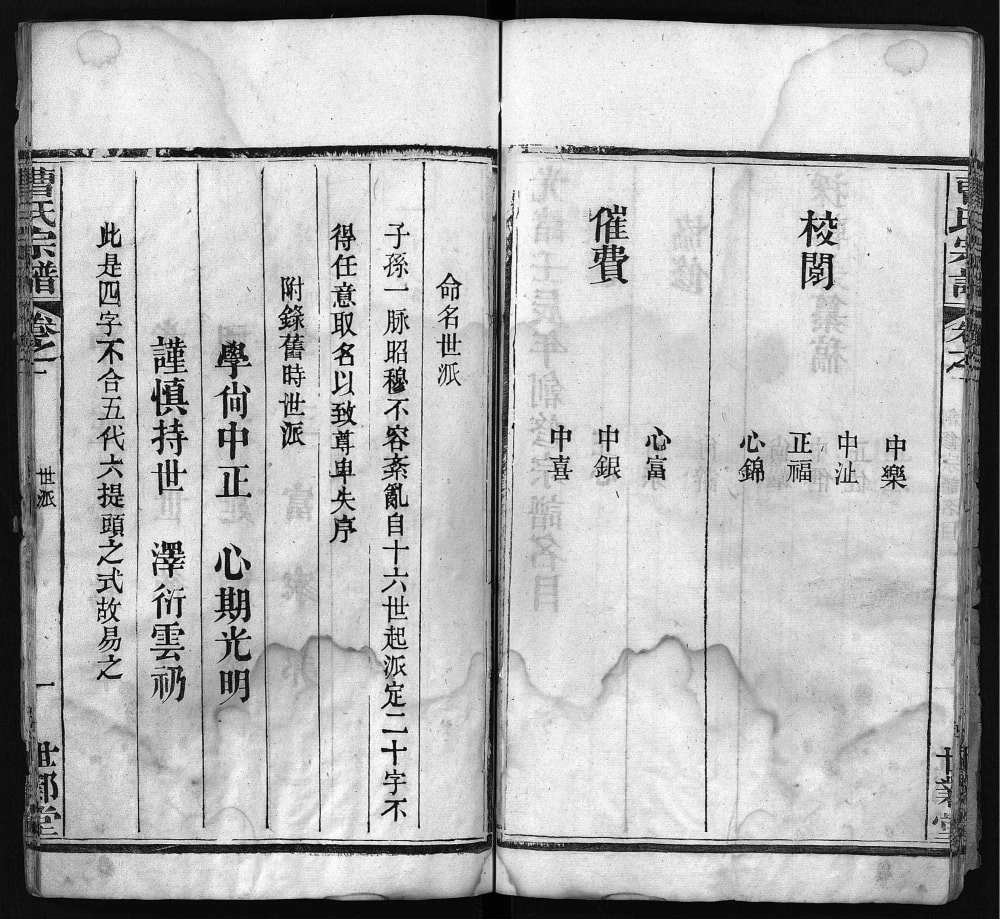 校閱
中樂
中沚
正福
心錦
催費
心富
中銀
中喜
命名世派
子孫一脉昭穆不容紊亂自十六世起派定二十字不
得任意取名以致尊卑失序
附錄舊時世派
學尙中正　心期光明
謹慎持世　澤衍雲礽
此是四字不合五代六提頭之式故易之
曹氏宗譜
卷之一
世派
一